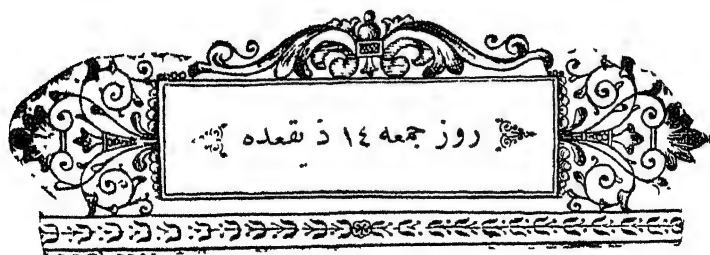 روز جمعه ١٤ ذیقعده